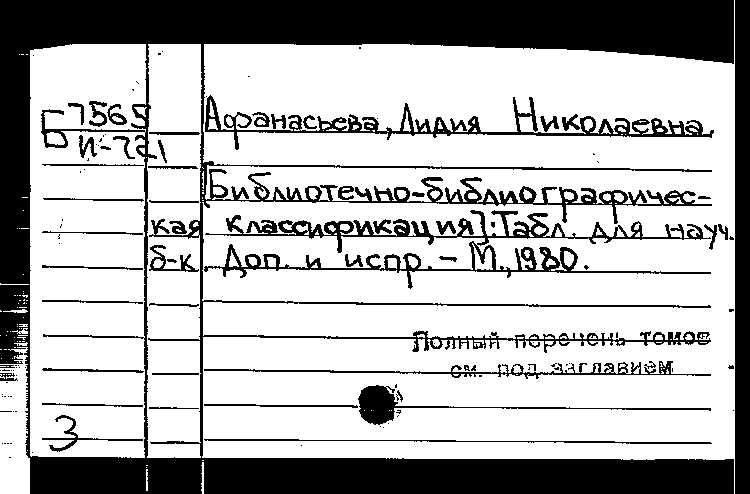 Б 7565
И-721
Афанасьева, Лидия Николаевна.
[Библиотечно-библиографичес-
кая классификация]: Табл. для науч.
б-к. Доп. и испр. - М., 1980.
Полный перечень томов
см. под заглавием
3